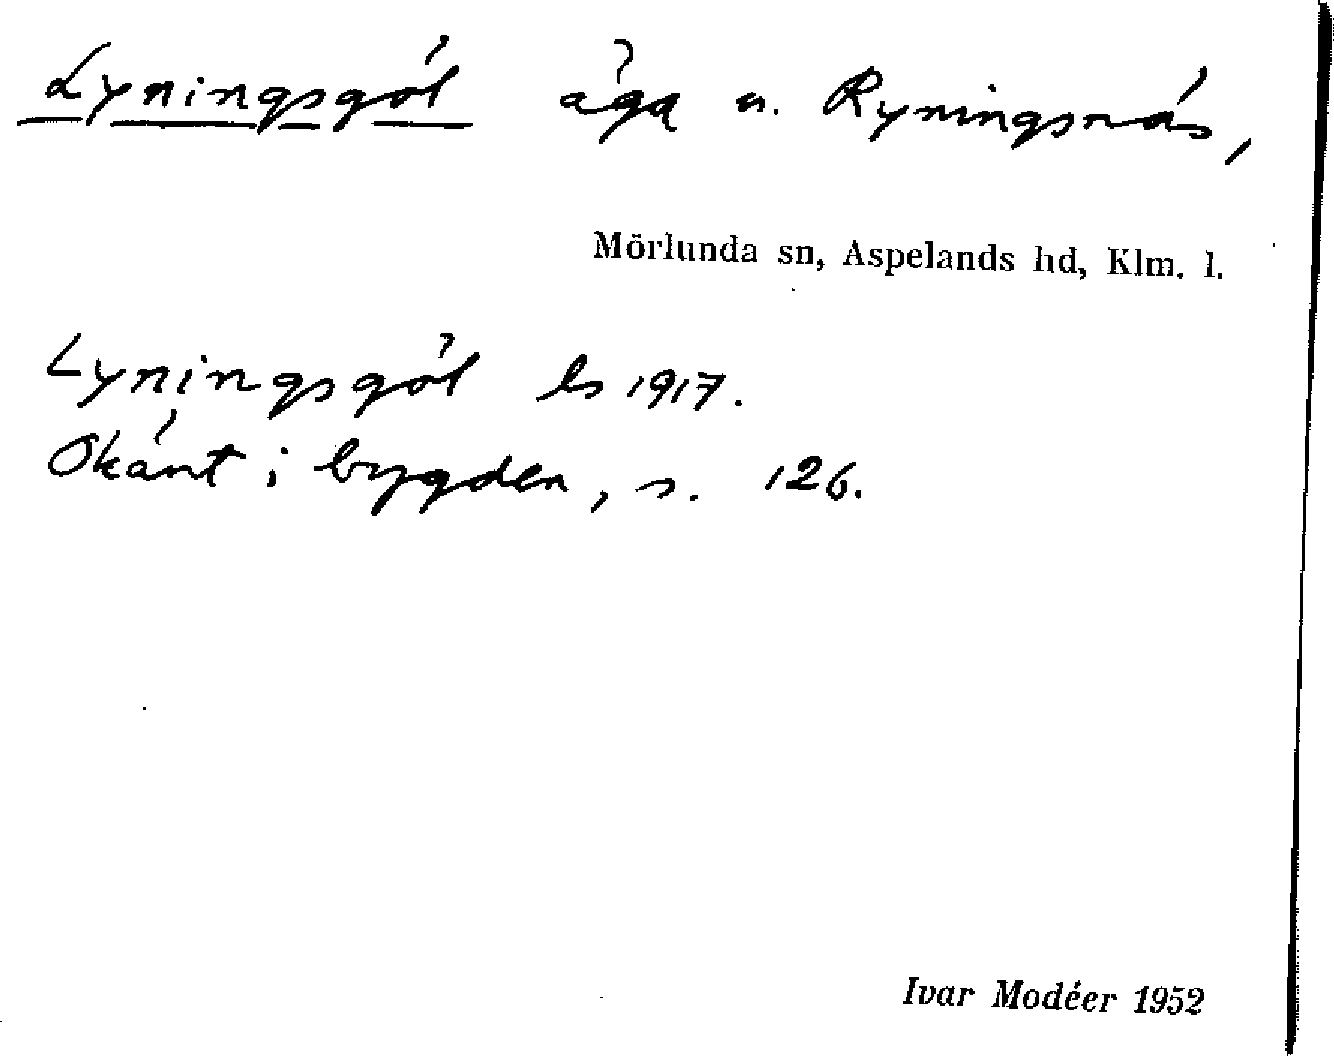 Lyningsgöl äga u. Ryningsnäs,
Mörlunda sn, Aspelands hd, Klm. l.
Lyningsgöl ls 1917.
Okänt i bygden, s. 126.
Ivar Modéer 1952